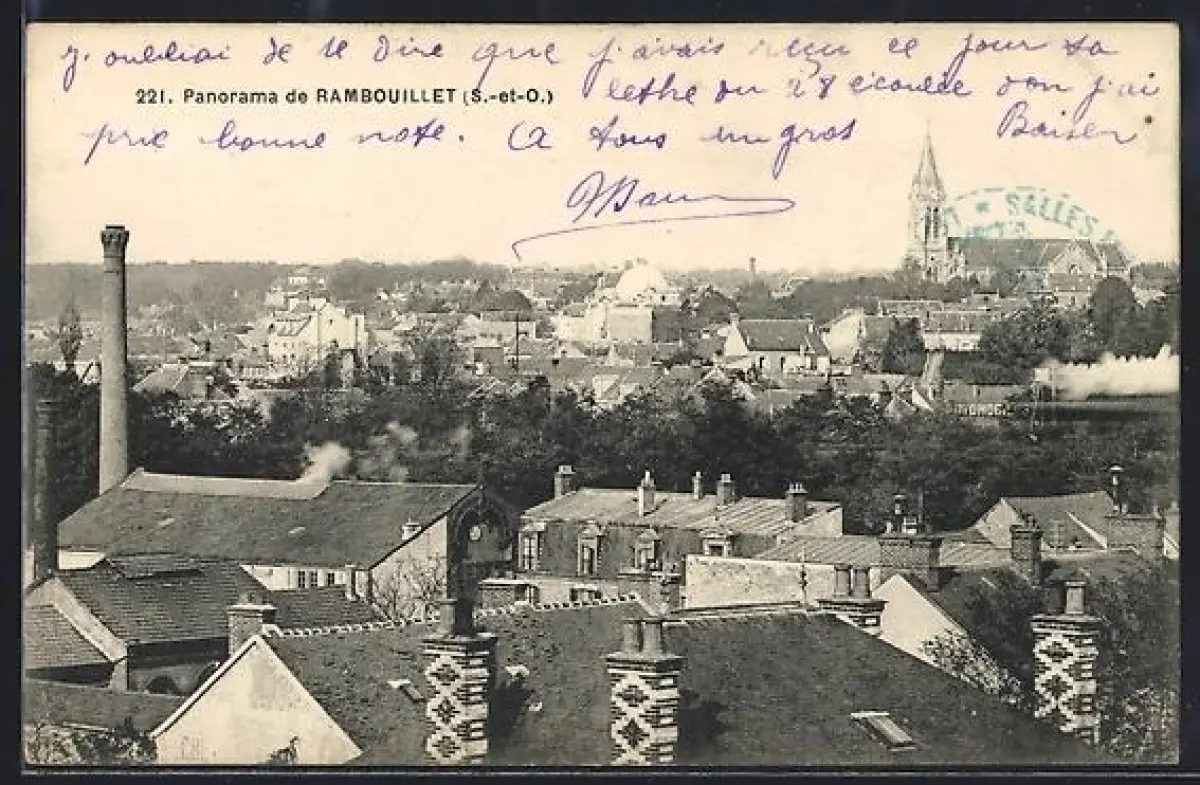 J'oubliai de te dire que j'avais reçu ce jour ta
221. Panorama de RAMBOUILLET (S.-et-O.)
lettre du 28 écoulée don j'ai
prie bonne note. A tous un gros Baiser
* SALLES